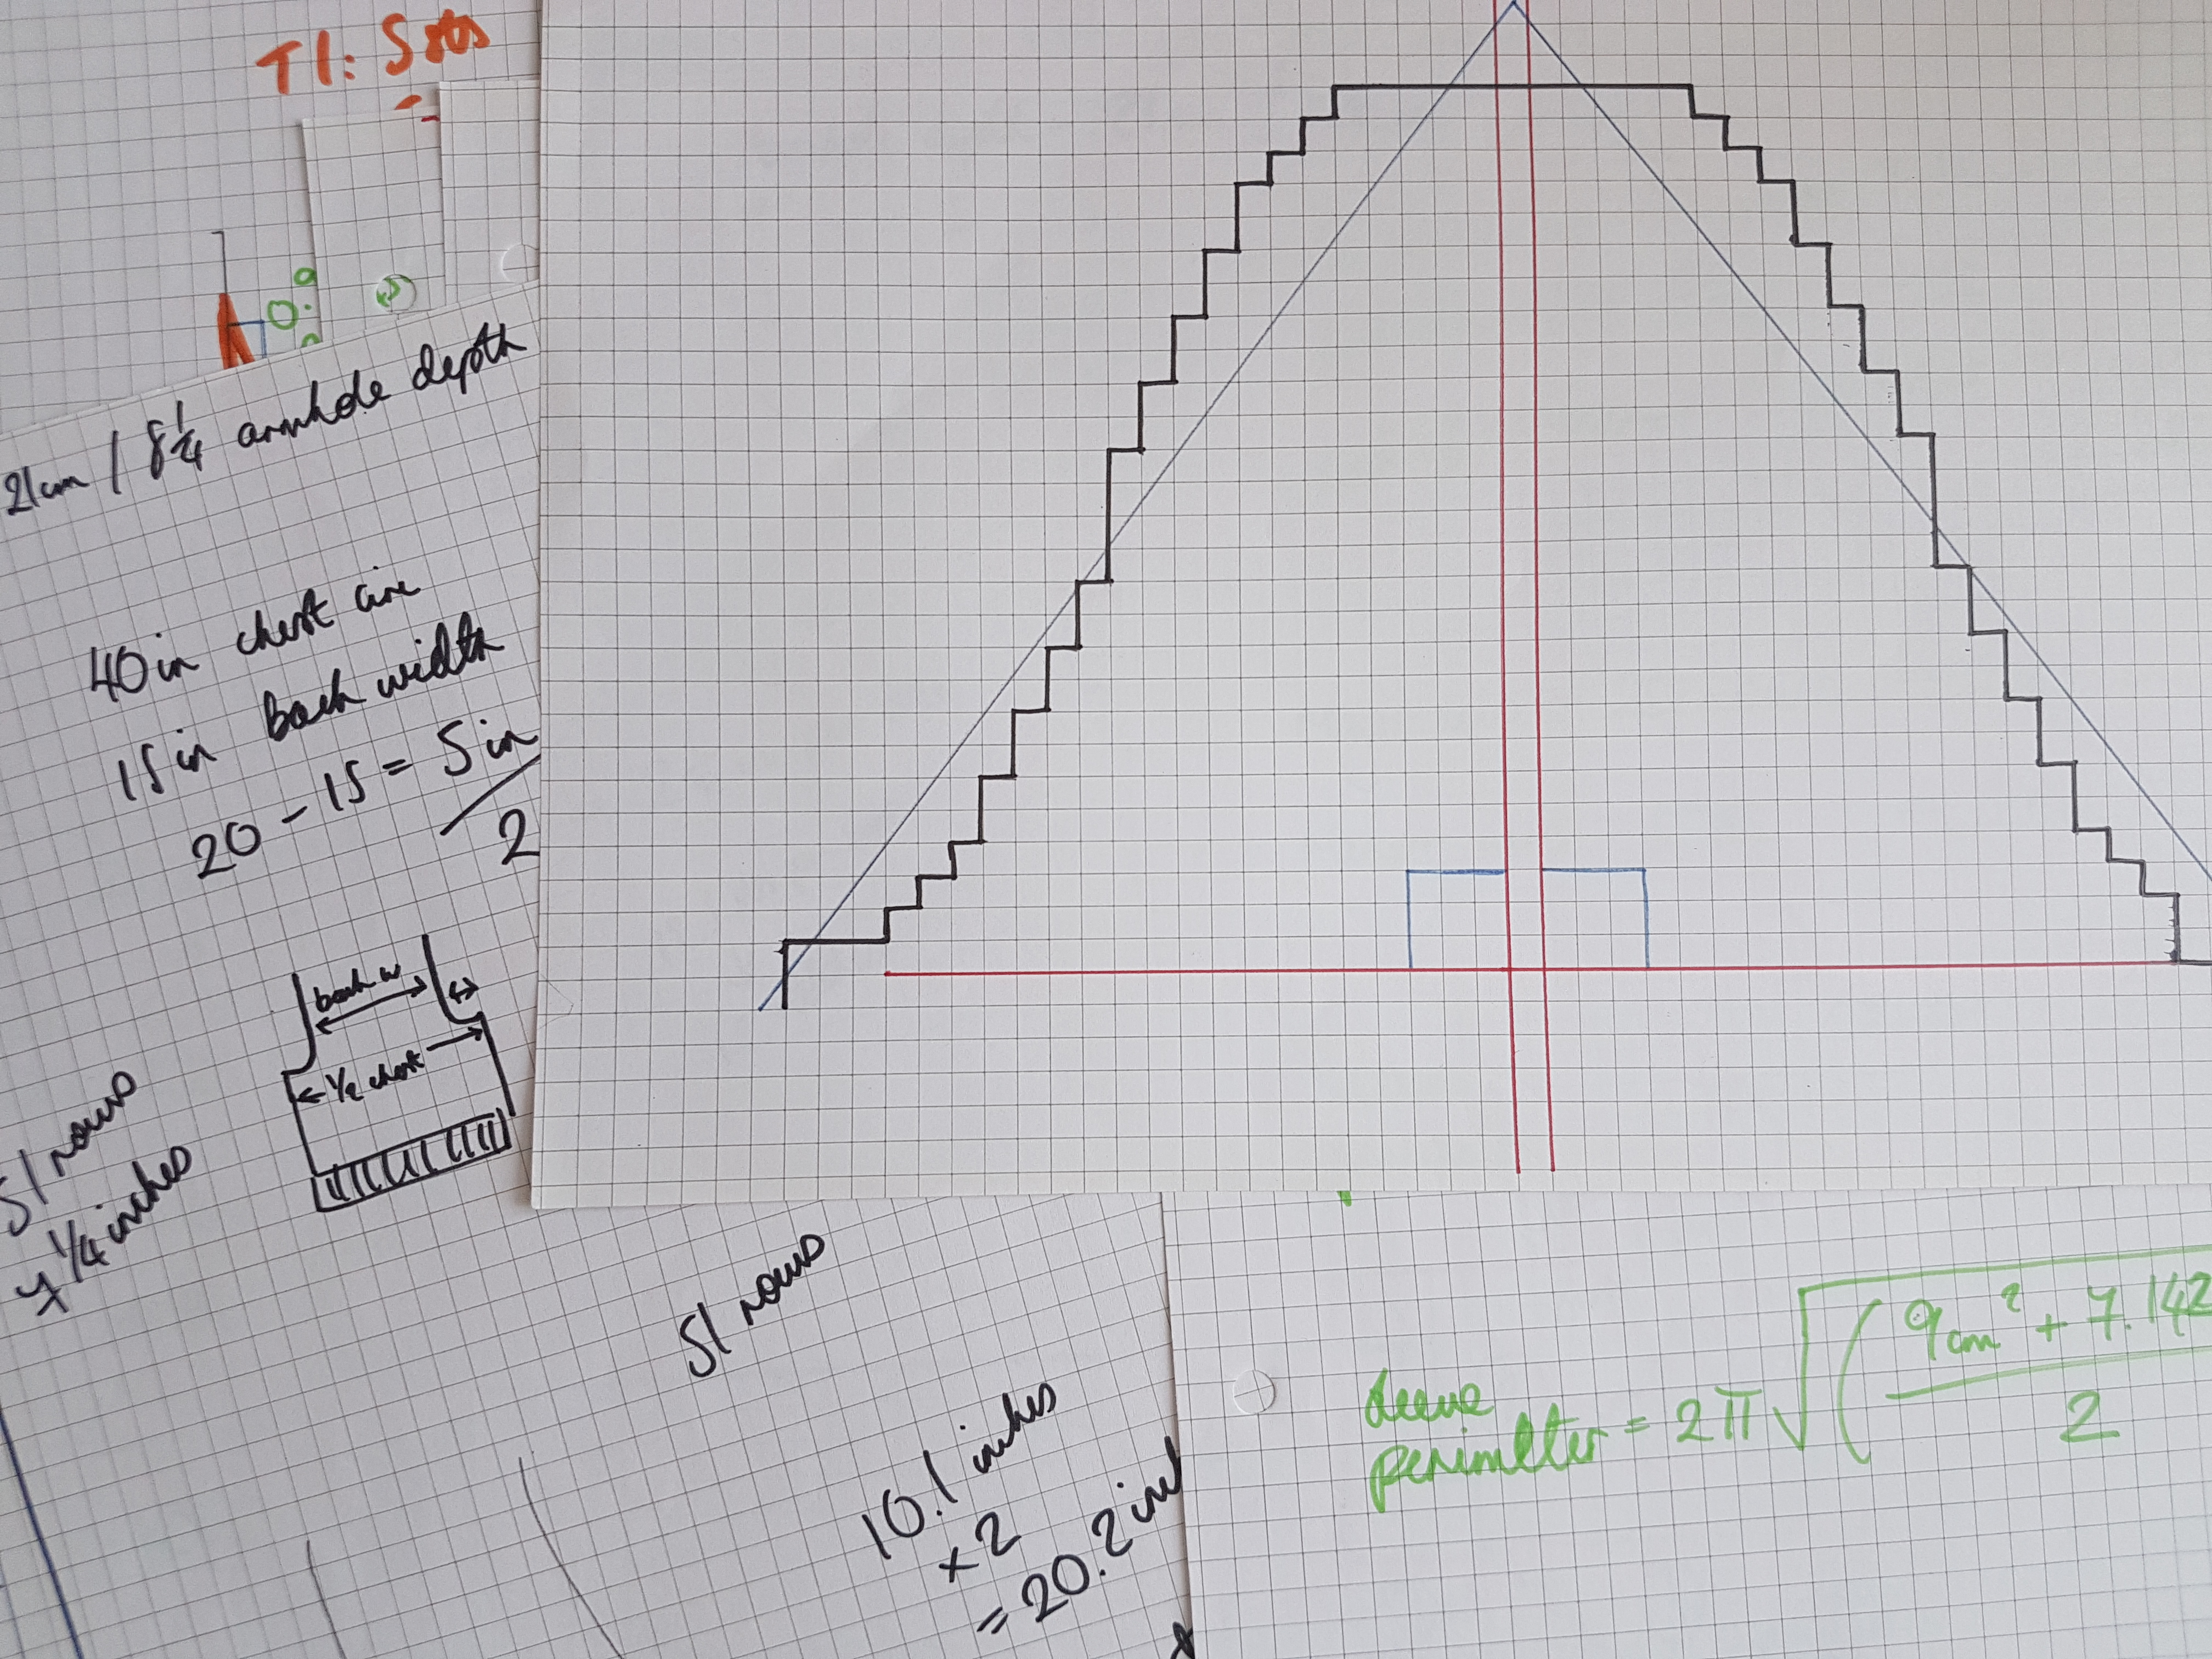 T1: 5 sts
0.9
21cm / 8 1/4 armhole depth
40in chest circ
15in back width
20 - 15 = 5in
2
back w
1/2 chest
51 rows
7 1/4 inches
51 rows
10.1 inches
x 2
= 20.2 inc
sleeve
perimeter = 2π√( 9cm² + 7.142
2